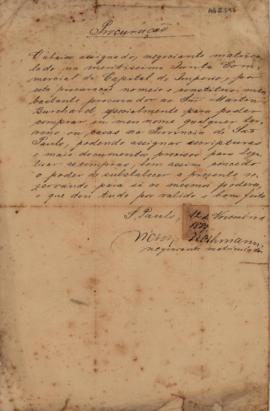 Procuração
O abaixo assignado, negociante matricu-
lado na meritissima Junta Com-
mercial da Capital do Imperio, por
esta procuração nomeio e constituo meu
bastante procurador ao Snr Martin
Burchard especialmente para poder
comprar em meu nome qualquer ter-
reno ou casas na Provincia de São
Paulo, podendo assignar escripturas
e mais documentos precisos para
compras, bem assim concedo
o poder de substabelecer a presente re-
zervando para si os mesmos poderes,
o que dará tudo por valido e bom feito
S. Paulo,
Victor Nothmann,
negociante matriculado